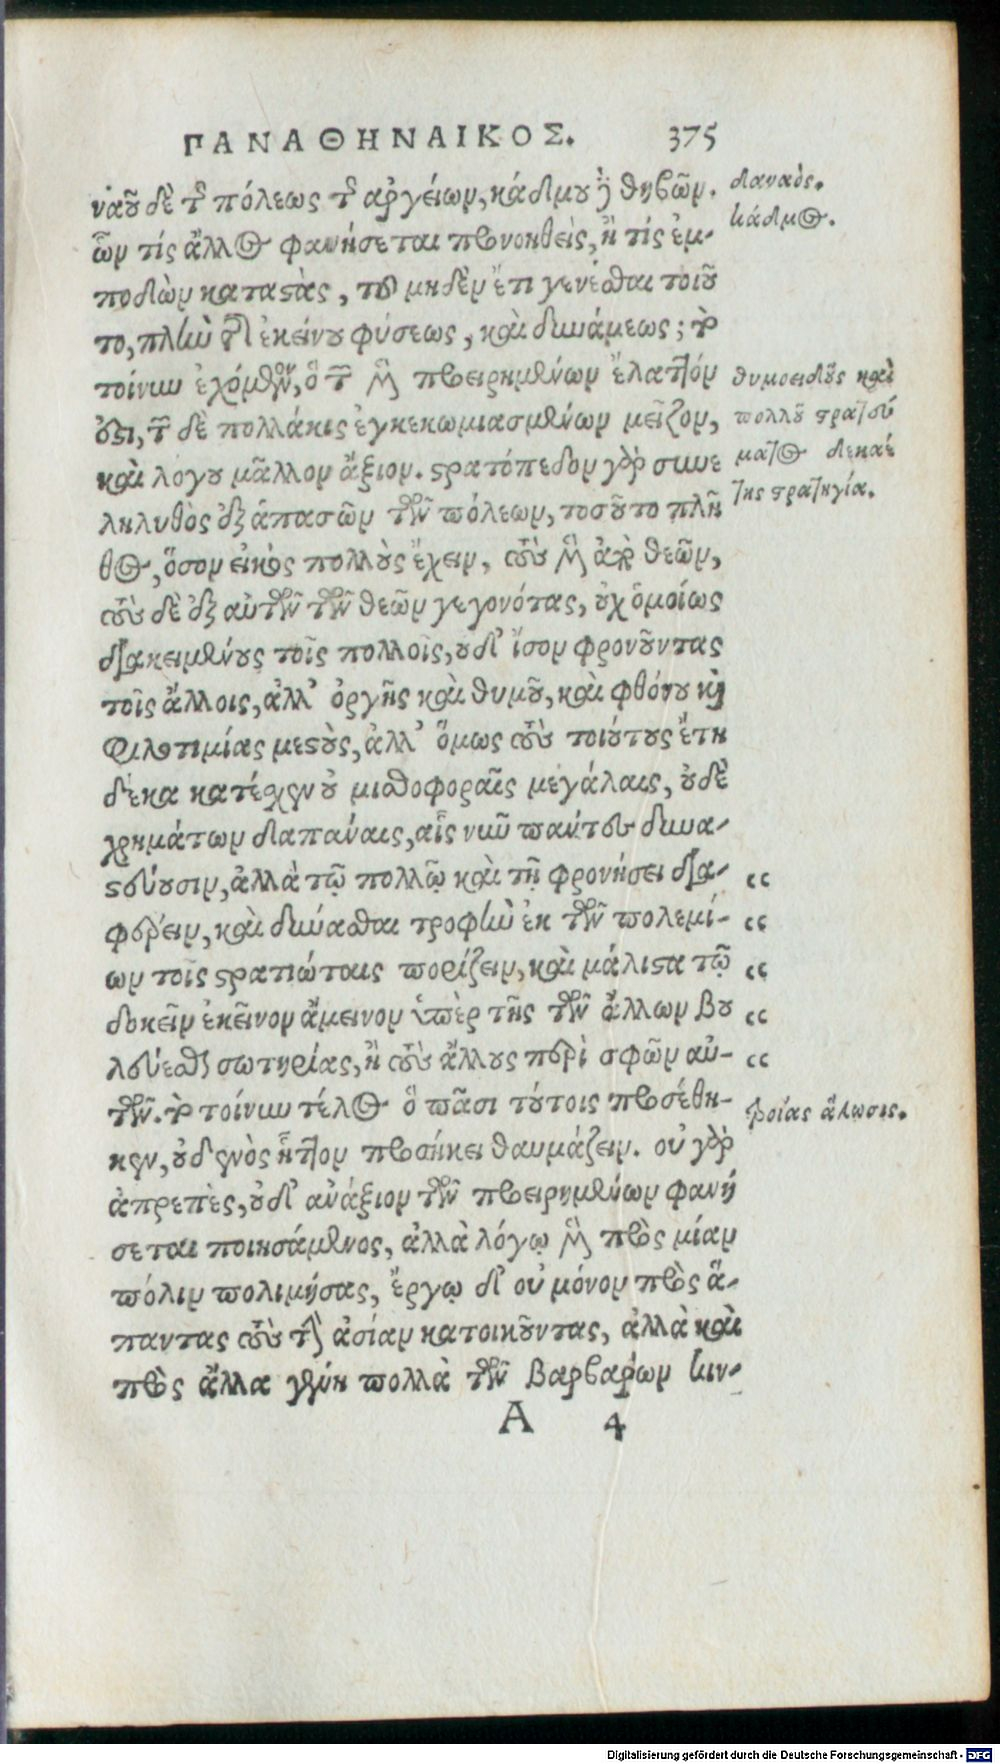 ΠΑΝΑΘΗΝΑΙΚΟΣ. 375
ναοῦ δὲ τῆς πόλεως τῆς ἀργείων, κάδμου δὲ θηβῶν. δαναὸς.
ὧν τίς ἄλλος φανήσεται προνοηθεὶς, ἢ τίς ἐμ- κάδμος.
ποδὼν καταστὰς, τοῦ μηδὲν ἔτι γενέσθαι τοιοῦ
το, πλὴν τῆς ἐκείνου φύσεως, καὶ δυνάμεως; τὸ
τοίνυν ἐχόμενον, ὃ τῶν μὲν προειρημένων ἔλαττόν θυμοειδοῦς καὶ
ἐστι, τῶν δὲ πολλάκις ἐγκεκωμιασμένων μεῖζον, πολλοῦ στρατεύ
καὶ λόγου μᾶλλον ἄξιον. στρατόπεδον γὰρ συνε ματος δεκαέ
ληλυθὸς ἐξ ἁπασῶν τῶν πόλεων, τοσοῦτο πλῆ της στρατηγία.
θος, ὅσον εἰκός πολλοὺς ἔχειν, τοὺς μὲν ἀπὸ θεῶν,
τοὺς δὲ ἐξ αὐτῶν τῶν θεῶν γεγονότας, οὐχ ὁμοίως
διακειμένους τοῖς πολλοῖς, οὐδ' ἴσον φρονοῦντας
τοῖς ἄλλοις, ἀλλ' ὀργῆς καὶ θυμοῦ, καὶ φθόνου καὶ
φιλοτιμίας μεστοὺς, ἀλλ' ὅμως τοὺς τοιούτους ἔτη
δέκα κατέσχεν οὐ μισθοφοραῖς μεγάλαις, οὐδὲ
χρημάτων δαπάναις, αἷς νῦν πάντες δυνα-
στεύουσιν, ἀλλὰ τῷ πολλῷ καὶ τῇ φρονήσει δια- “
φέρειν, καὶ δύνασθαι τροφὴν ἐκ τῶν πολεμί- “
ων τοῖς στρατιώταις πορίζειν, καὶ μάλιστα τῷ “
δοκεῖν ἐκεῖνον ἄμεινον ὑπὲρ τῆς τῶν ἄλλων βου “
λεύεσθαι σωτηρίας, ἢ τοὺς ἄλλους περὶ σφῶν αὐ- “
τῶν. τὸ τοίνυν τέλος ὃ πᾶσι τούτοις προσέθη- τροίας ἅλωσις.
κεν, οὐδενὸς ἧττον προσήκει θαυμάζειν. οὐ γὰρ
ἀπρεπὲς, οὐδ' ἀνάξιον τῶν προειρημένων φανή
σεται ποιησάμενος, ἀλλὰ λόγῳ μὲν πρὸς μίαν
πόλιν πολεμήσας, ἔργῳ δ' οὐ μόνον πρὸς ἅ-
παντας τοὺς τὴν ἀσίαν κατοικοῦντας, ἀλλὰ καὶ
πρὸς ἄλλα γένη πολλὰ τῶν βαρβάρων κιν-
A 4
Digitalisierung gefördert durch die Deutsche Forschungsgemeinschaft - DFG